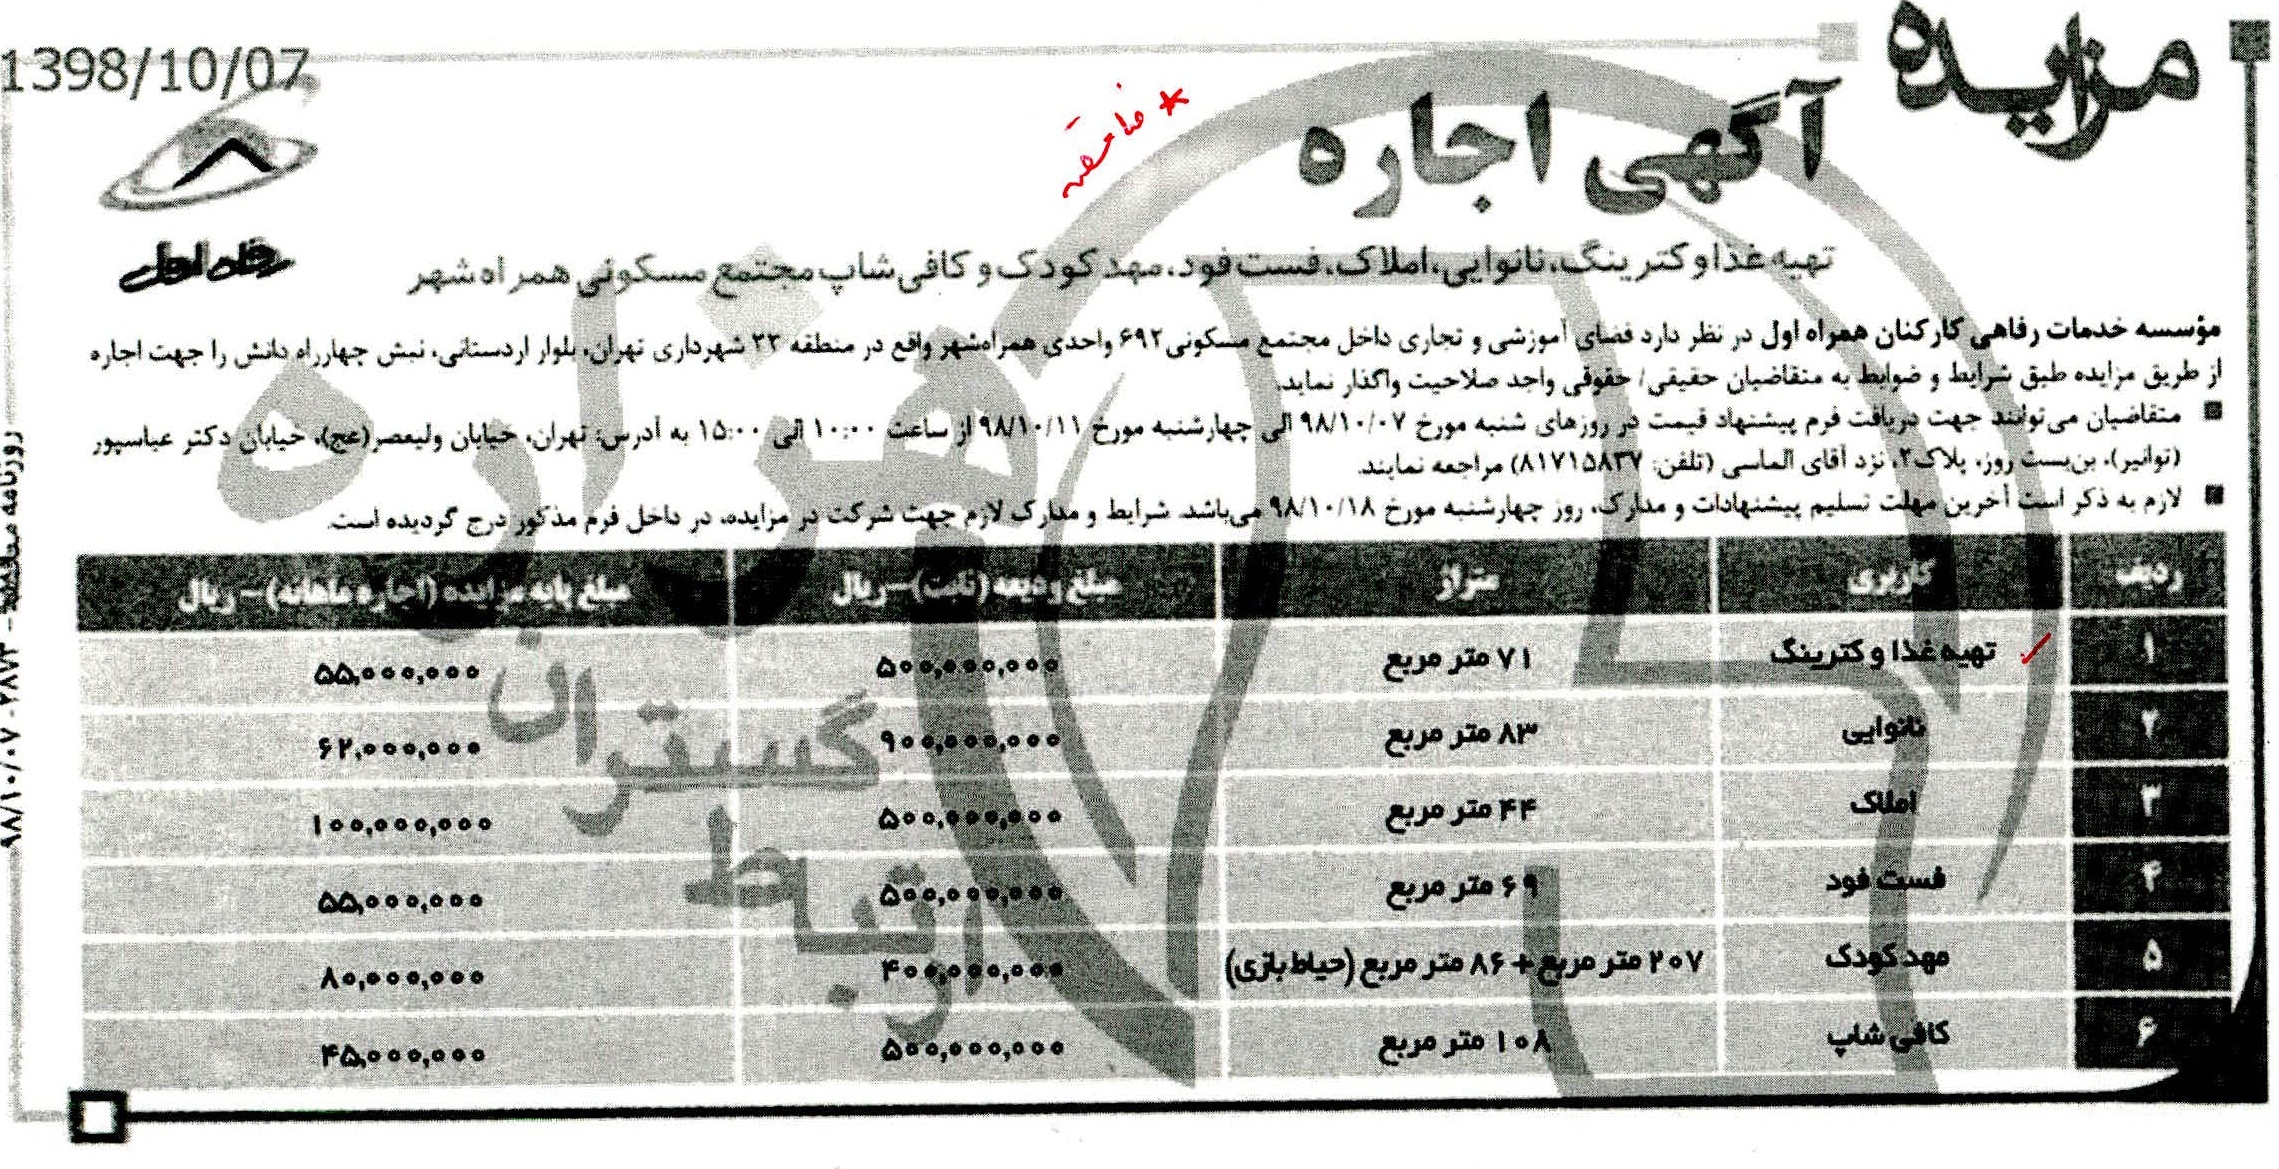 1398/10/07
مزایده
آگهی اجاره
رفاه اول
تهیه غذا و کترینگ، نانوایی، املاک، فست فود، مهد کودک و کافی شاپ مجتمع مسکونی همراه شهر
مؤسسه خدمات رفاهی کارکنان همراه اول در نظر دارد فضای آموزشی و تجاری داخل مجتمع مسکونی ۶۹۲ واحدی همراه‌شهر واقع در منطقه ۲۲ شهرداری تهران، بلوار اردستانی، نبش چهارراه دانش را جهت اجاره
از طریق مزایده طبق شرایط و ضوابط به متقاضیان حقیقی/ حقوقی واجد صلاحیت واگذار نماید.
متقاضیان می‌توانند جهت دریافت فرم پیشنهاد قیمت در روزهای شنبه مورخ ۹۸/۱۰/۰۷ الی چهارشنبه مورخ ۹۸/۱۰/۱۱ از ساعت ۱۰:۰۰ الی ۱۵:۰۰ به آدرس: تهران، خیابان ولیعصر(عج)، خیابان دکتر عباسپور
(توانیر)، بن‌بست روز، پلاک۲، نزد آقای الماسی (تلفن: ۸۱۷۱۵۸۳۷) مراجعه نمایند.
لازم به ذکر است آخرین مهلت تسلیم پیشنهادات و مدارک، روز چهارشنبه مورخ ۹۸/۱۰/۱۸ می‌باشد. شرایط و مدارک لازم جهت شرکت در مزایده، در داخل فرم مذکور درج گردیده است.
ردیف کاربری متراژ مبلغ ودیعه (ثابت)–ریال مبلغ پایه مزایده (اجاره ماهانه)– ریال
۱ تهیه غذا و کترینگ ۷۱ متر مربع ۵۰۰,۰۰۰,۰۰۰ ۵۵,۰۰۰,۰۰۰
۲ نانوایی ۸۳ متر مربع ۹۰۰,۰۰۰,۰۰۰ ۶۲,۰۰۰,۰۰۰
۳ املاک ۴۴ متر مربع ۵۰۰,۰۰۰,۰۰۰ ۱۰۰,۰۰۰,۰۰۰
۴ فست فود ۶۹ متر مربع ۵۰۰,۰۰۰,۰۰۰ ۵۵,۰۰۰,۰۰۰
۵ مهد کودک ۲۰۷ متر مربع + ۸۶ متر مربع (حیاط بازی) ۴۰۰,۰۰۰,۰۰۰ ۸۰,۰۰۰,۰۰۰
۶ کافی شاپ ۱۰۸ متر مربع ۵۰۰,۰۰۰,۰۰۰ ۴۵,۰۰۰,۰۰۰
هزاره
گستران
ارتباط
روزنامه مناقصه - ۲۸۷۳ - ۹۸/۱۰/۰۷